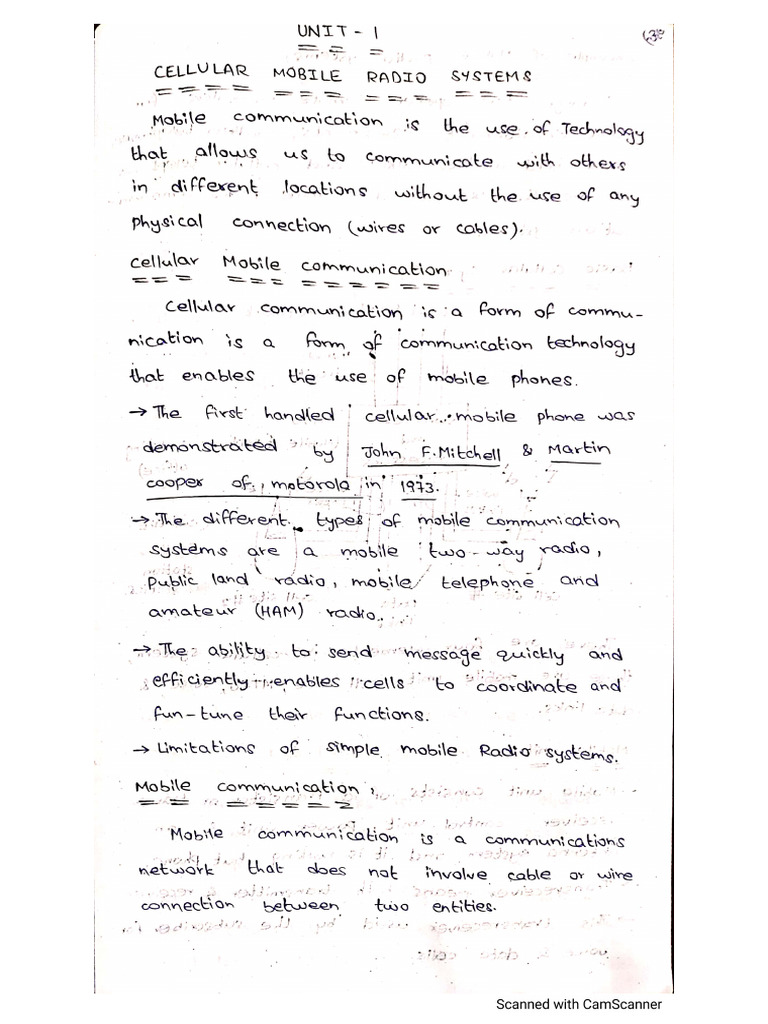 UNIT - 1
CELLULAR MOBILE RADIO SYSTEMS
Mobile communication is the use of Technology
that allows us to communicate with others
in different locations without the use of any
physical connection (wires or cables).
Cellular Mobile communication
Cellular communication is a form of commu-
nication is a form of communication technology
that enables the use of mobile phones.
→ The first handled cellular mobile phone was
demonstrated by John F. Mitchell & Martin
cooper of motorola in 1973.
→ The different types of mobile communication
systems are a mobile two-way radio,
public land radio, mobile telephone and
amateur (HAM) radio.
→ The ability to send message quickly and
efficiently enables cells to coordinate and
fun-tune their functions.
→ Limitations of simple mobile Radio systems.
Mobile communication,
Mobile communication is a communications
network that does not involve cable or wire
connection between two entities.
Scanned with CamScanner